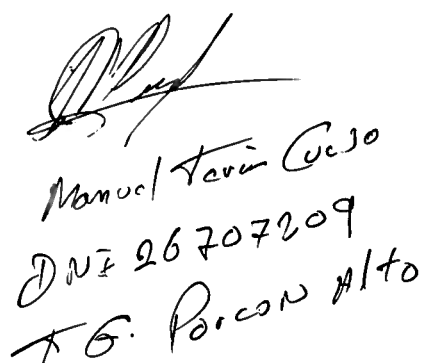 Manuel Tarin Cueso
DNI 26707209
T G. Porcon Alto